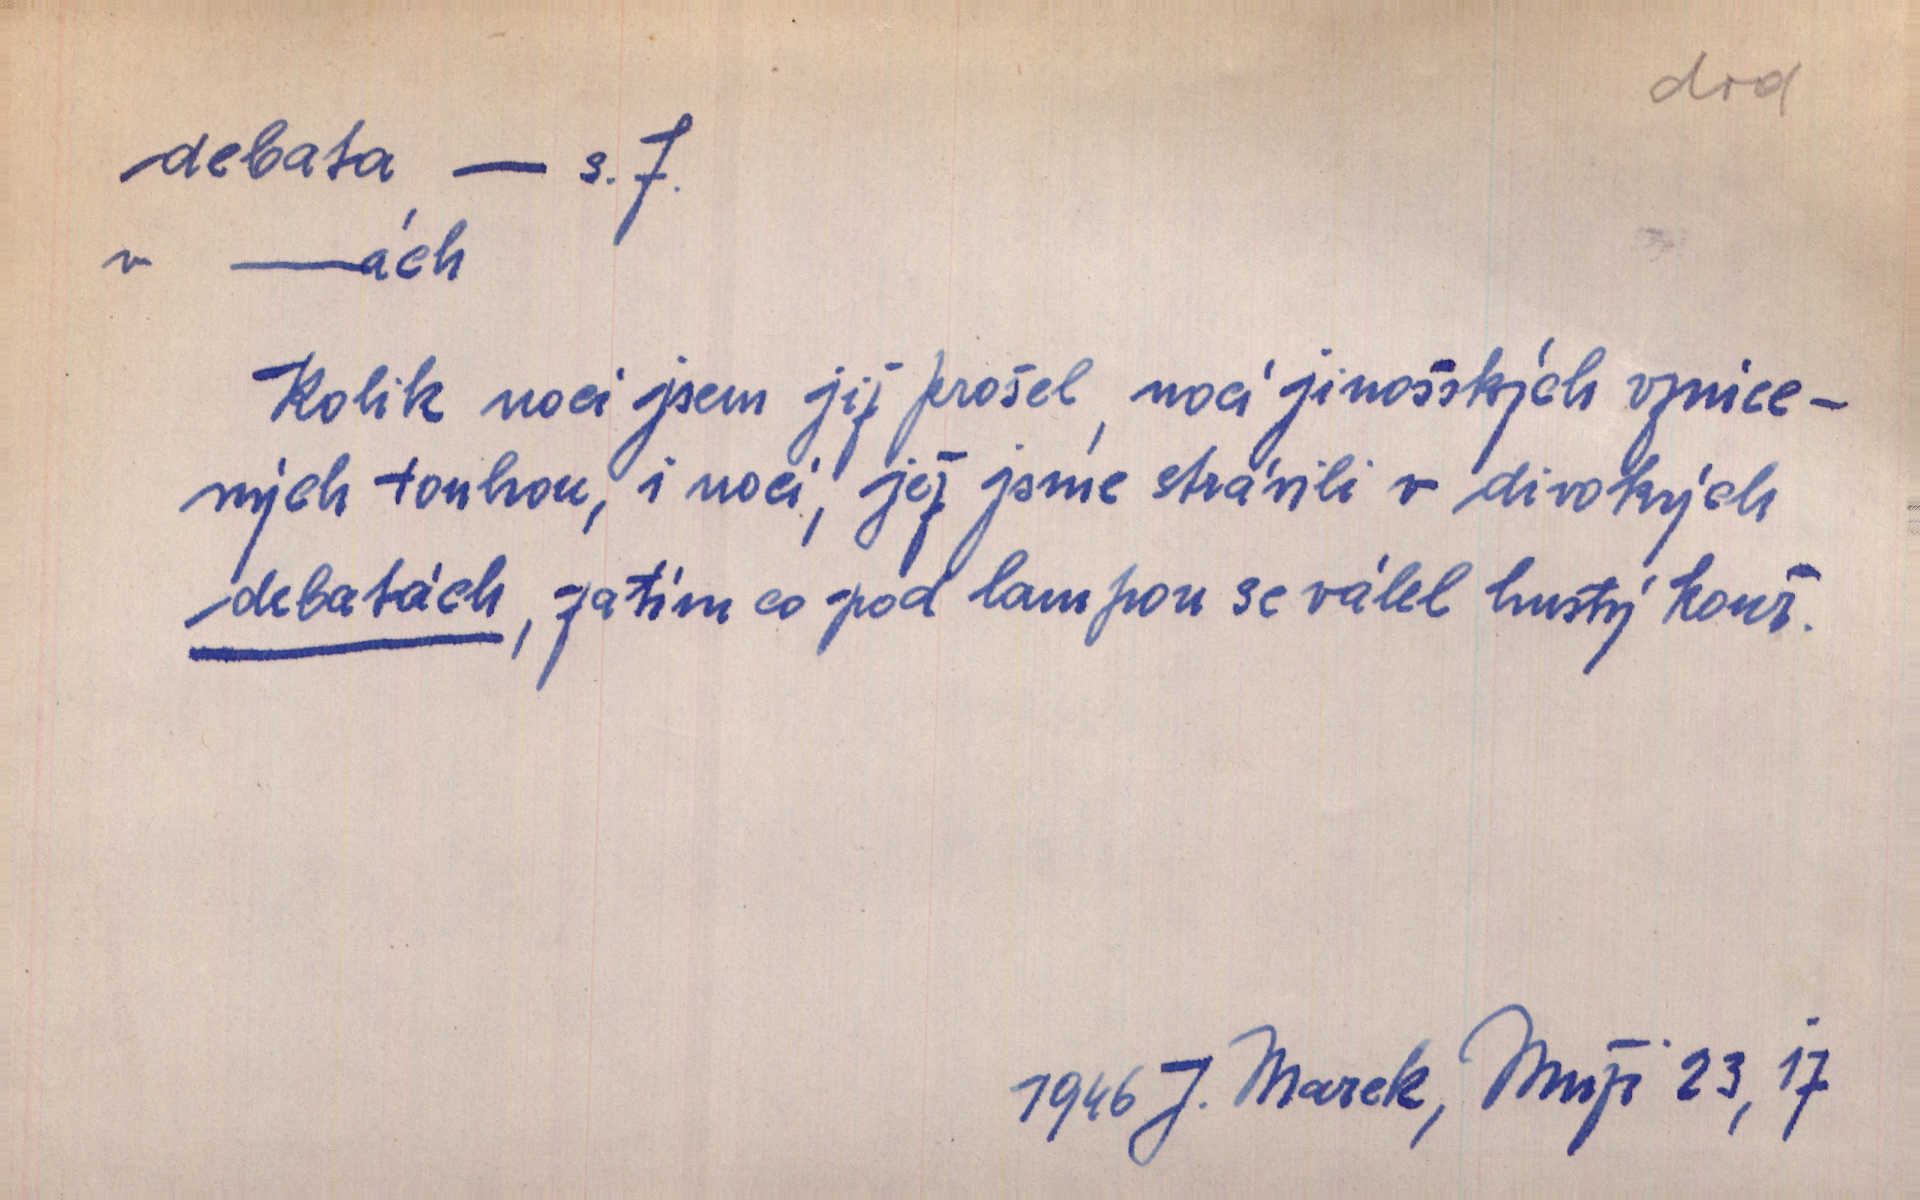 drd
debata — s. ž.
v —ách
Kolik nocí jsem již prošel, nocí jinošských vzníce-
ných touhou, i nocí, jež jsme strávili v divokých
debatách, zatím co pod lampou se válel hustý kouř.
1946 J. Marek, Muži 23, 17